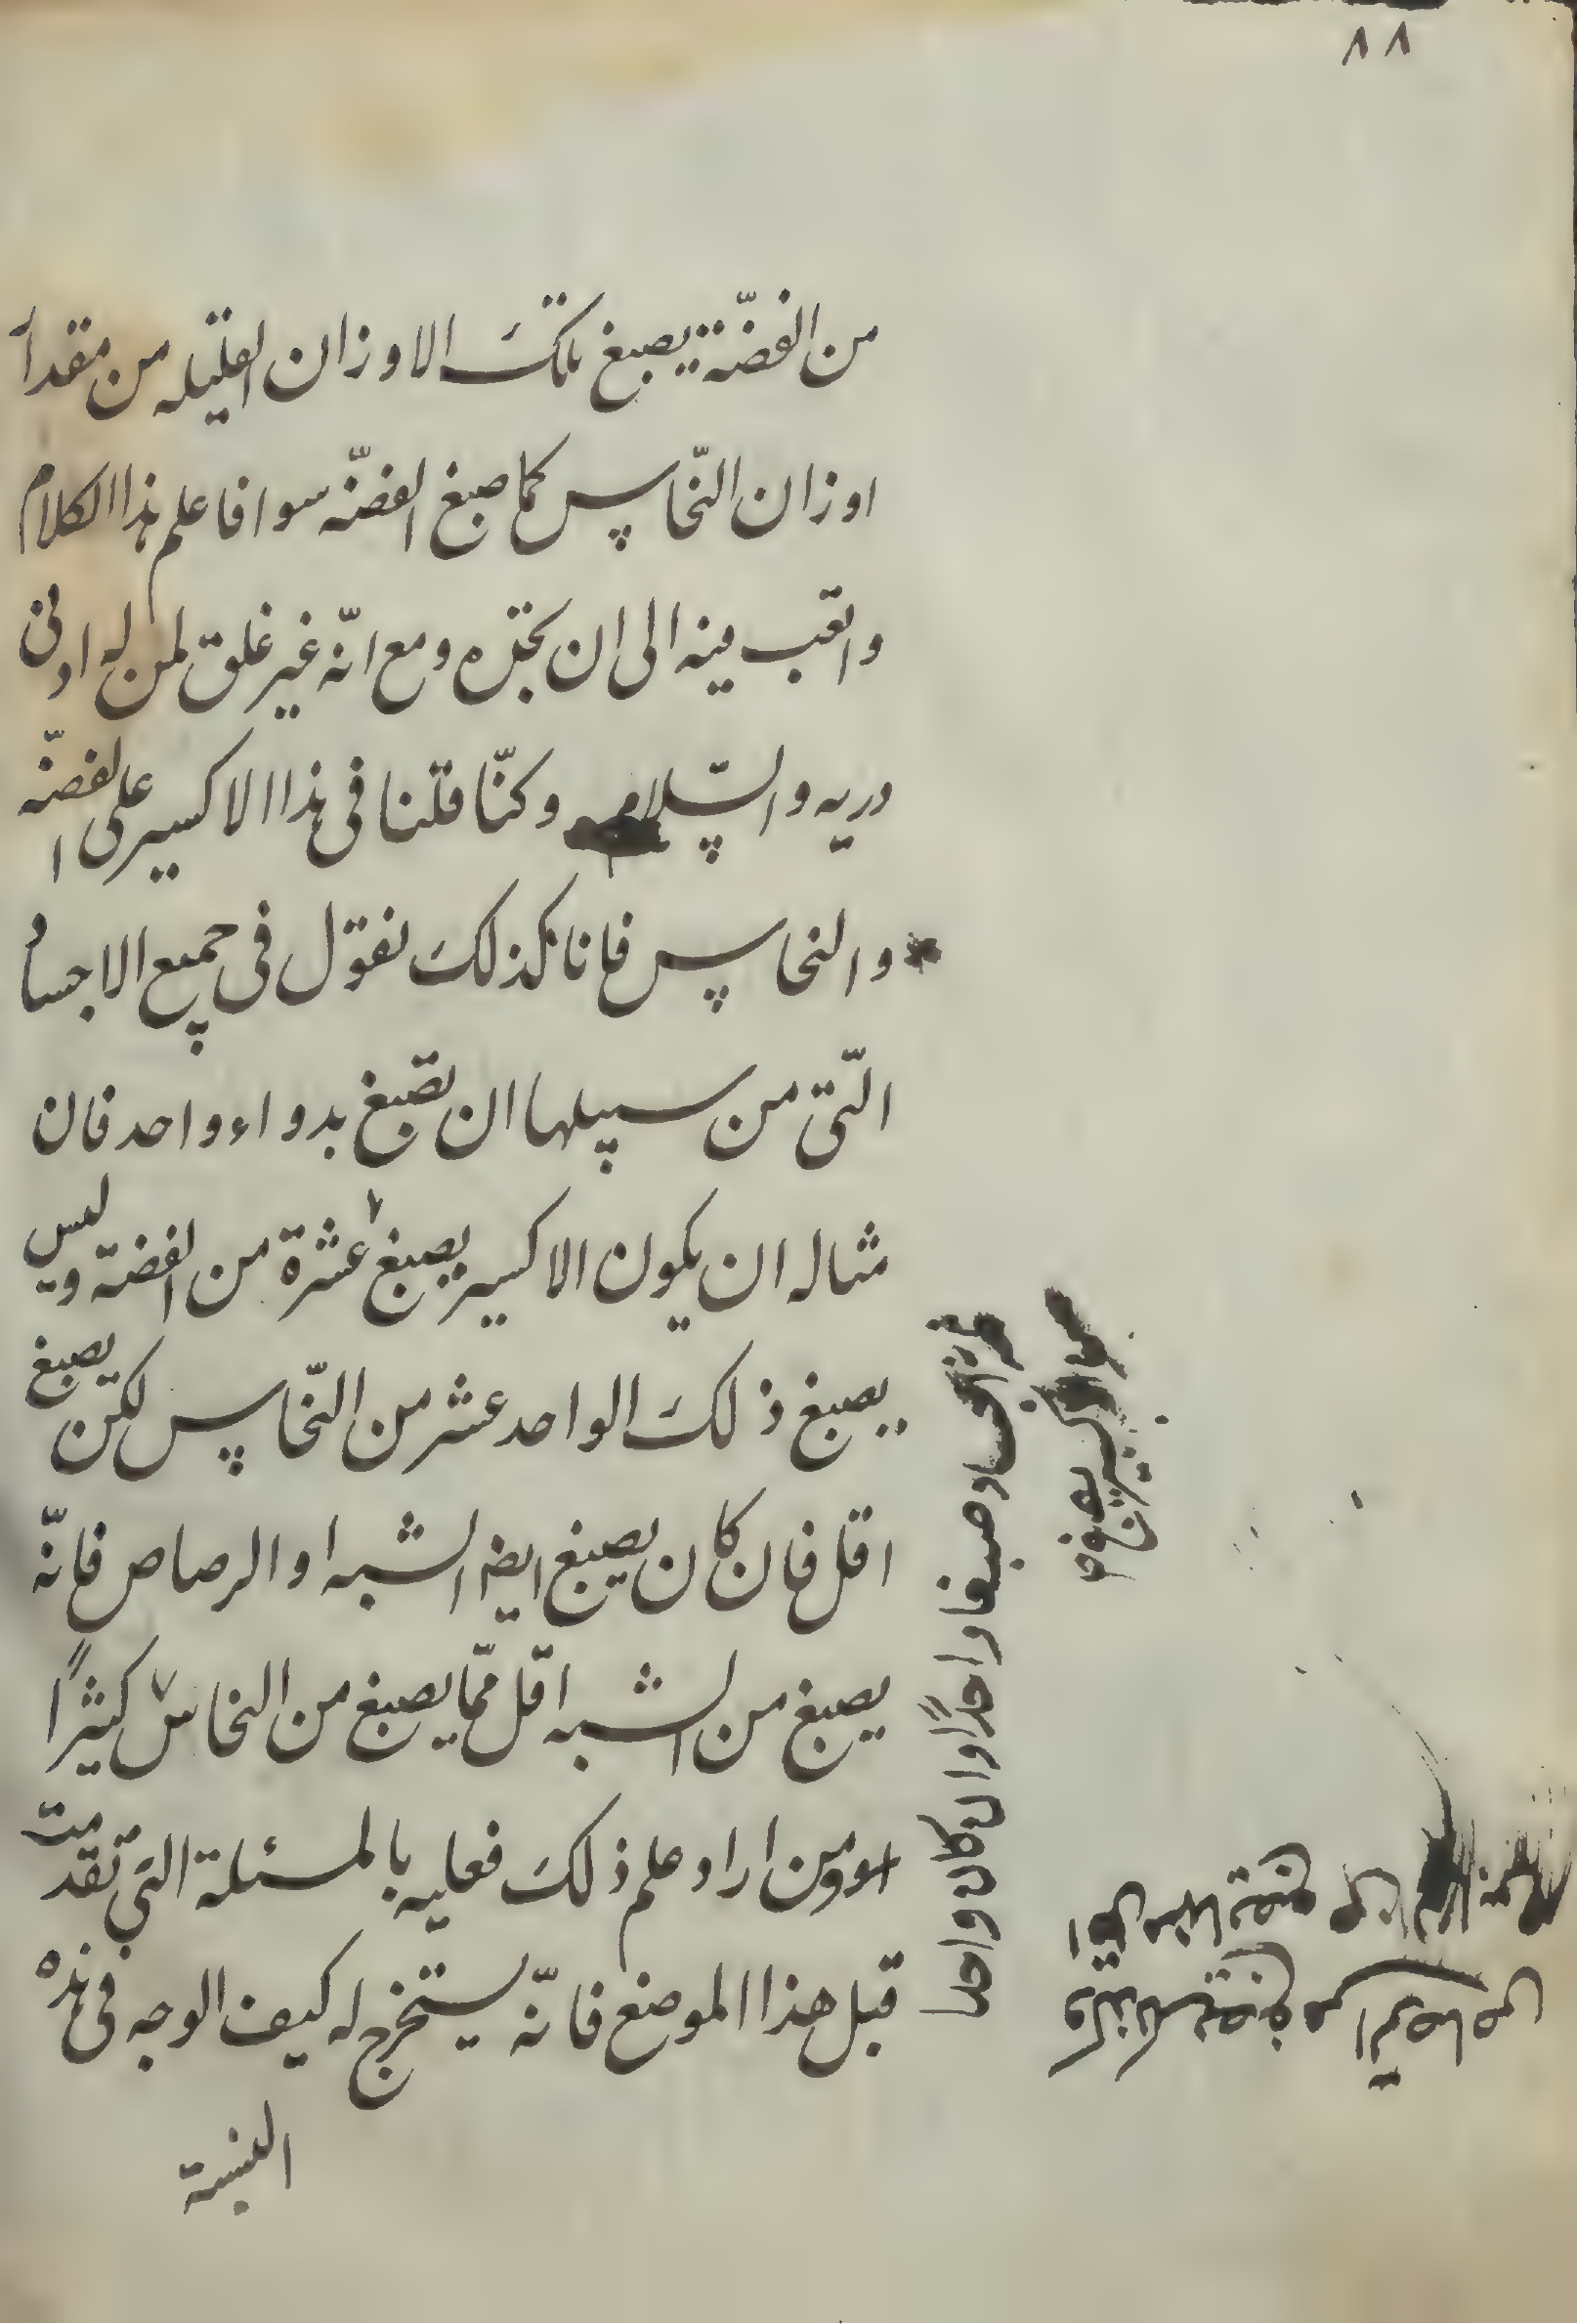 ٨٨
من الفضّة يصبغ بتلك الاوزان القليله من مقدار
اوزان النّحاس كما صبغ الفضّه سوا فاعلم هذا الكلام
واتعب فيه الى ان تخبره ومع انّه غير غلق لمن له ادنى
دريه والسّلام وكنّا قلنا فى هذا الاكسير على الفضّه
والنحاس فانا كذلك نقول فى جميع الاجساد
الّتى من سبيلها ان تصبغ بدواء واحد فان
مثاله ان يكون الاكسير يصبغ عشرة من الفضة وليس
يصبغ ذلك الواحد عشر من النّحاس لكن يصبغ
اقل فان كان يصبغ ايض الشبه او الرصاص فانّه
يصبغ من الشبه اقل ممّا يصبغ من النحاس كثيرًا
ومن اراد علم ذلك فعليه بالمسئلة التى تقدمت
قبل هذا الموضع فانّه يستخرج له كيف الوجه فى هذه
النسبة
صبغا واحدًا وان كان واحدا
وكذلك يصبغ من الرصاص